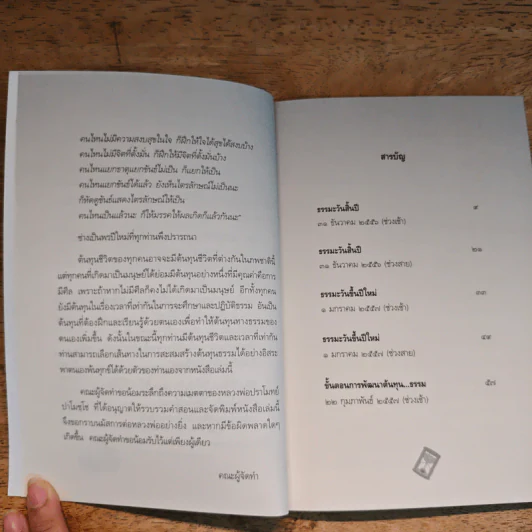 คนไหนไม่มีความสงบสุขในใจ ก็ฝึกให้ใจได้สุขได้สงบบ้าง
คนไหนไม่มีจิตที่ตั้งมั่น ก็ฝึกให้มีจิตที่ตั้งมั่นบ้าง
คนไหนแยกธาตุแยกขันธ์ไม่เป็น ก็แยกให้เป็น
คนไหนแยกขันธ์ได้แล้ว ยังเห็นไตรลักษณ์ไม่เป็นนะ
ก็หัดดูขันธ์แสดงไตรลักษณ์ให้เป็น
คนไหนเป็นแล้วนะ ก็ให้มรรคให้ผลเกิดก็แล้วกันนะ"
ช่างเป็นพรปีใหม่ที่ทุกท่านพึงปรารถนา
ต้นทุนชีวิตของทุกคนอาจจะมีต้นทุนชีวิตที่ต่างกันในภพชาตินี้
แต่ทุกคนที่เกิดมาเป็นมนุษย์ได้ย่อมมีต้นทุนอย่างหนึ่งที่มีคุณค่าคือการ
มีศีล เพราะถ้าหากไม่มีศีลก็คงไม่ได้เกิดมาเป็นมนุษย์ อีกทั้งทุกคน
ยังมีต้นทุนในเรื่องเวลาที่เท่ากันในการจะศึกษาและปฏิบัติธรรม อันเป็น
ต้นทุนที่ต้องฝึกและเรียนรู้ด้วยตนเองเพื่อทำให้ต้นทุนทางธรรมของ
ตนเองเพิ่มขึ้น ดังนั้นในขณะนี้ทุกท่านมีต้นทุนชีวิตและเวลาที่เท่ากัน
ท่านสามารถเลือกเส้นทางในการสะสมสร้างต้นทุนธรรมได้อย่างอิสระ
พาตนเองพ้นทุกข์ได้ด้วยตัวของท่านเองจากหนังสือเล่มนี้
คณะผู้จัดทำขอน้อมระลึกถึงความเมตตาของหลวงพ่อปราโมทย์
ปาโมชฺโช ที่ได้อนุญาตให้รวบรวมคำสอนและจัดพิมพ์หนังสือเล่มนี้
จึงขอกราบนมัสการต่อหลวงพ่ออย่างยิ่ง และหากมีข้อผิดพลาดใดๆ
เกิดขึ้น คณะผู้จัดทำขอน้อมรับไว้แต่เพียงผู้เดียว
คณะผู้จัดทำ
สารบัญ
ธรรมะวันสิ้นปี ๙
๓๑ ธันวาคม ๒๕๕๖ (ช่วงเช้า)
ธรรมะวันสิ้นปี ๒๑
๓๑ ธันวาคม ๒๕๕๖ (ช่วงสาย)
ธรรมะวันขึ้นปีใหม่ ๓๓
๑ มกราคม ๒๕๕๗ (ช่วงเช้า)
ธรรมะวันขึ้นปีใหม่ ๔๔
๑ มกราคม ๒๕๕๗ (ช่วงสาย)
ขั้นตอนการพัฒนาต้นทุน...ธรรม ๕๗
๒๒ กุมภาพันธ์ ๒๕๕๗ (ช่วงเช้า)